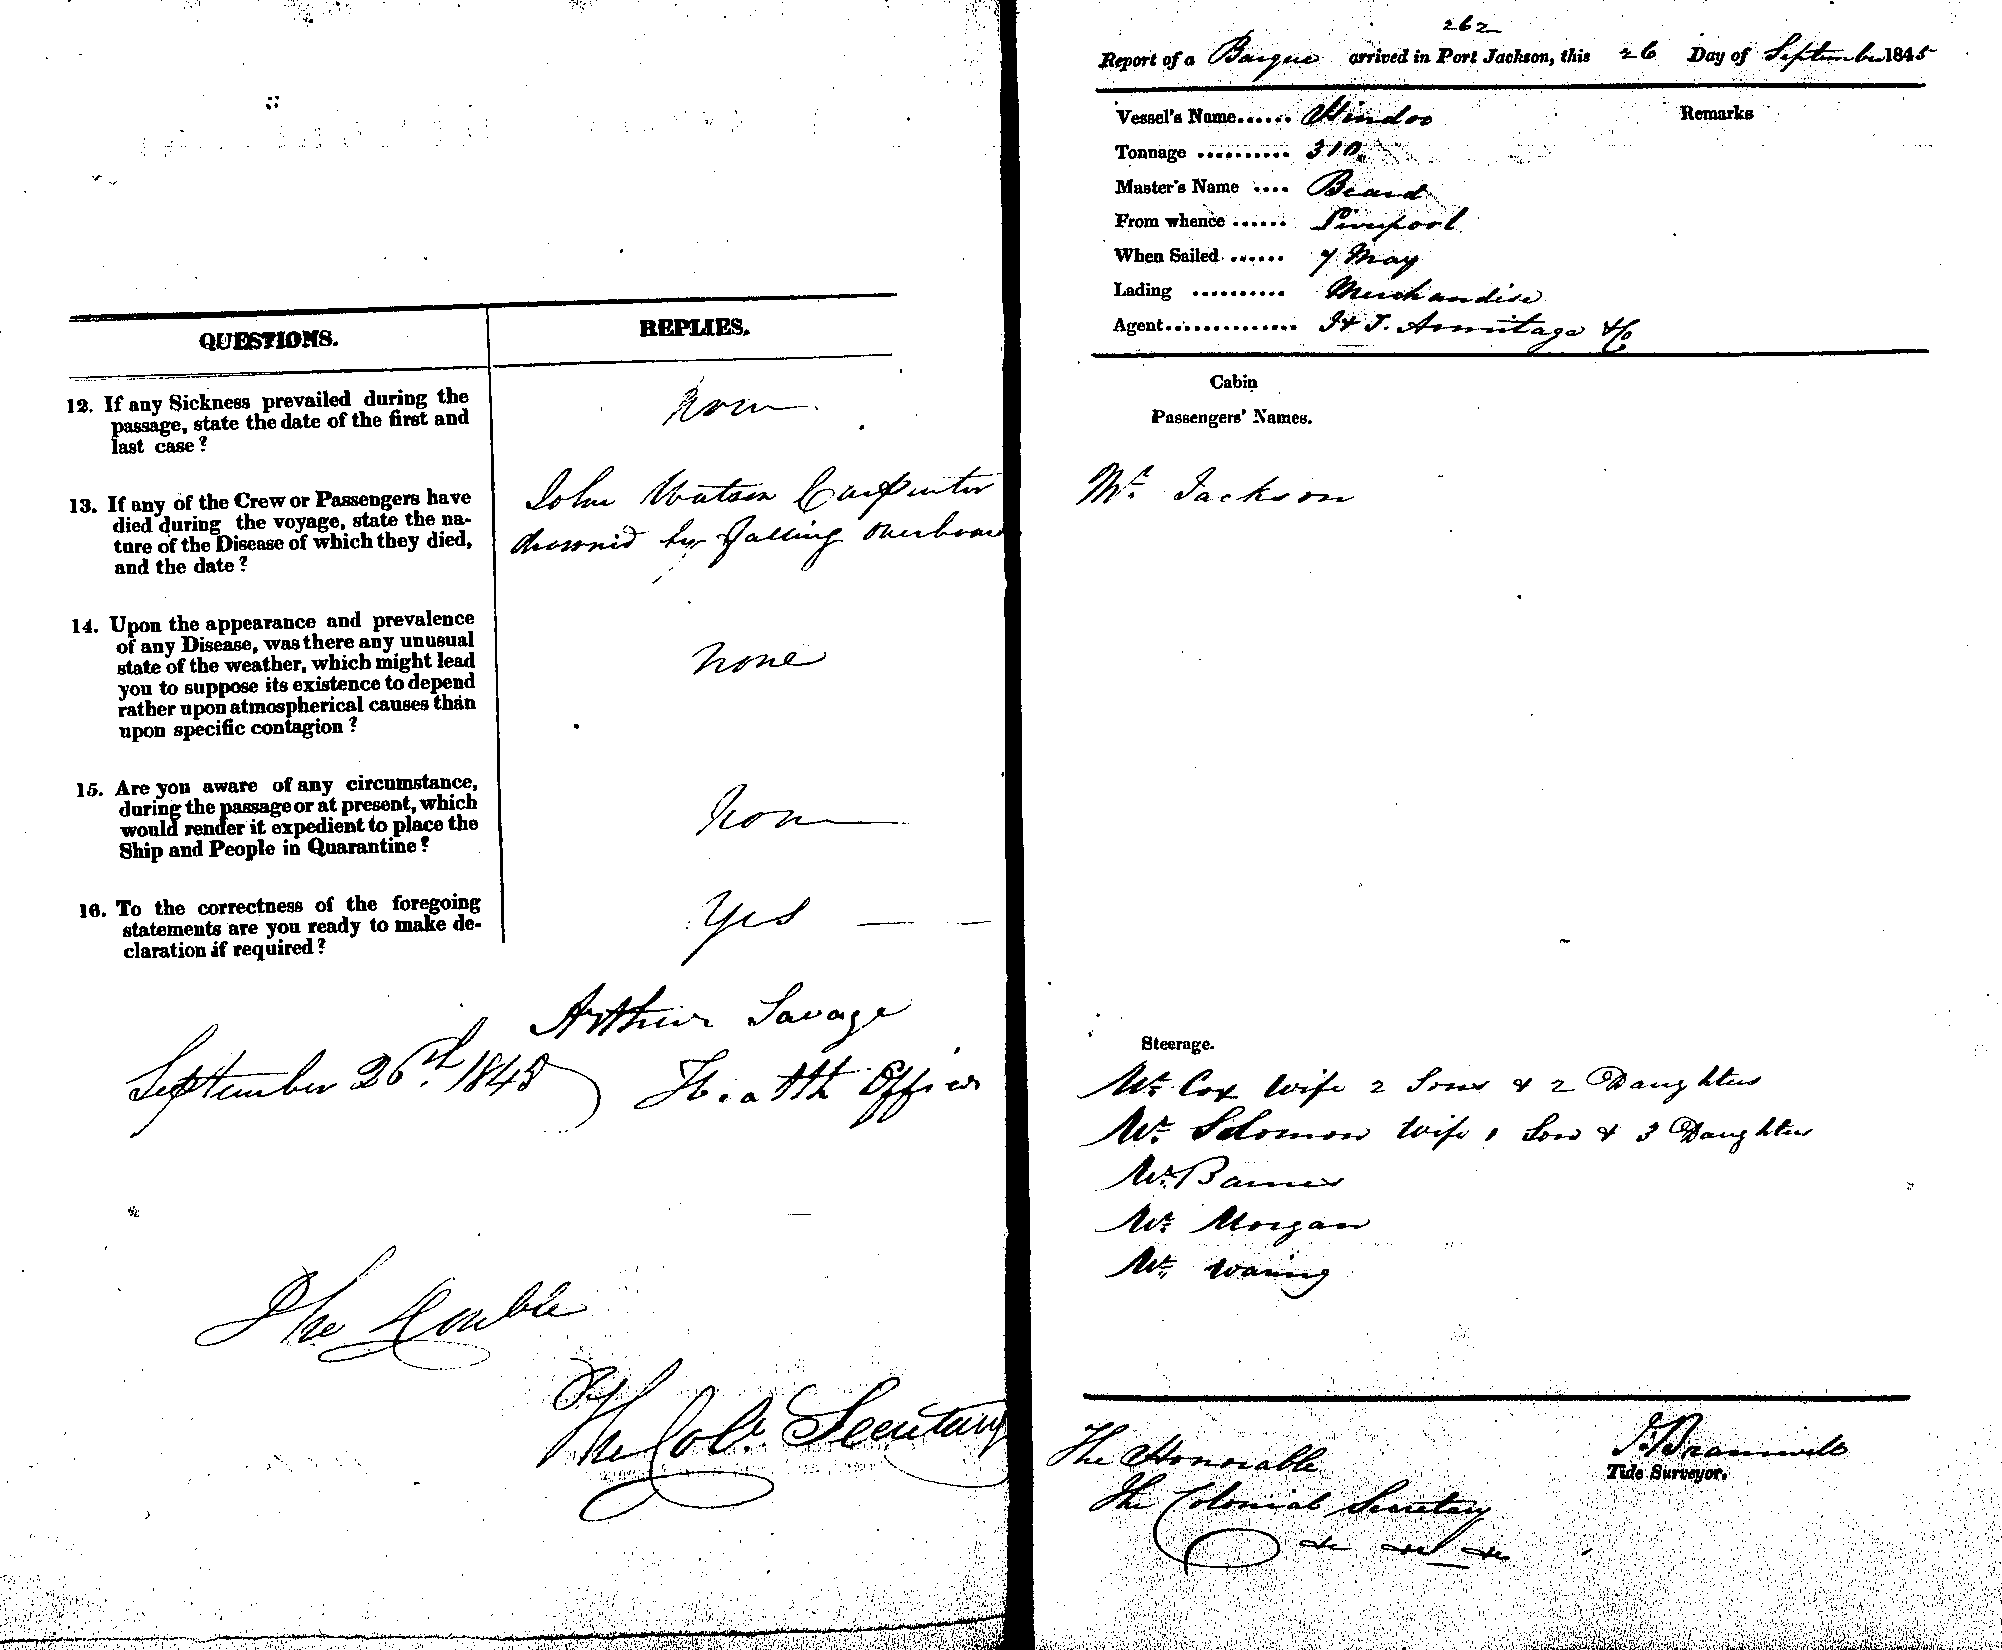 QUESTIONS.
REPLIES.
12. If any Sickness prevailed during the
passage, state the date of the first and
last case?
None
13. If any of the Crew or Passengers have
died during the voyage, state the na-
ture of the Disease of which they died,
and the date?
John Watson Carpenter
drowned by falling overboard
14. Upon the appearance and prevalence
of any Disease, was there any unusual
state of the weather, which might lead
you to suppose its existence to depend
rather upon atmospherical causes than
upon specific contagion?
None
15. Are you aware of any circumstance,
during the passage or at present, which
would render it expedient to place the
Ship and People in Quarantine?
None
16. To the correctness of the foregoing
statements are you ready to make de-
claration if required?
Yes
Arthur Savage
September 26th 1845
Health Officer
The Honble
The Col. Secretary
262
Report of a Barque arrived in Port Jackson, this 26 Day of September 1845
Vessel's Name...... Hindoo
Remarks
Tonnage .......... 310
Master's Name .... Beard
From whence ...... Liverpool
When Sailed ...... 7 May
Lading .......... Merchandise
Agent.............. Armitage & Co
Cabin
Passengers' Names.
Mr. Jackson
Steerage.
Mr. Cox Wife 2 Sons & 2 Daughters
Mr. Solomon Wife 1 Son & 3 Daughters
Mr. Barnes
Mr. Morgan
Mr. Waring
The Honorable
The Colonial Secretary
&c &c &c
Bramwell
Tide Surveyor.